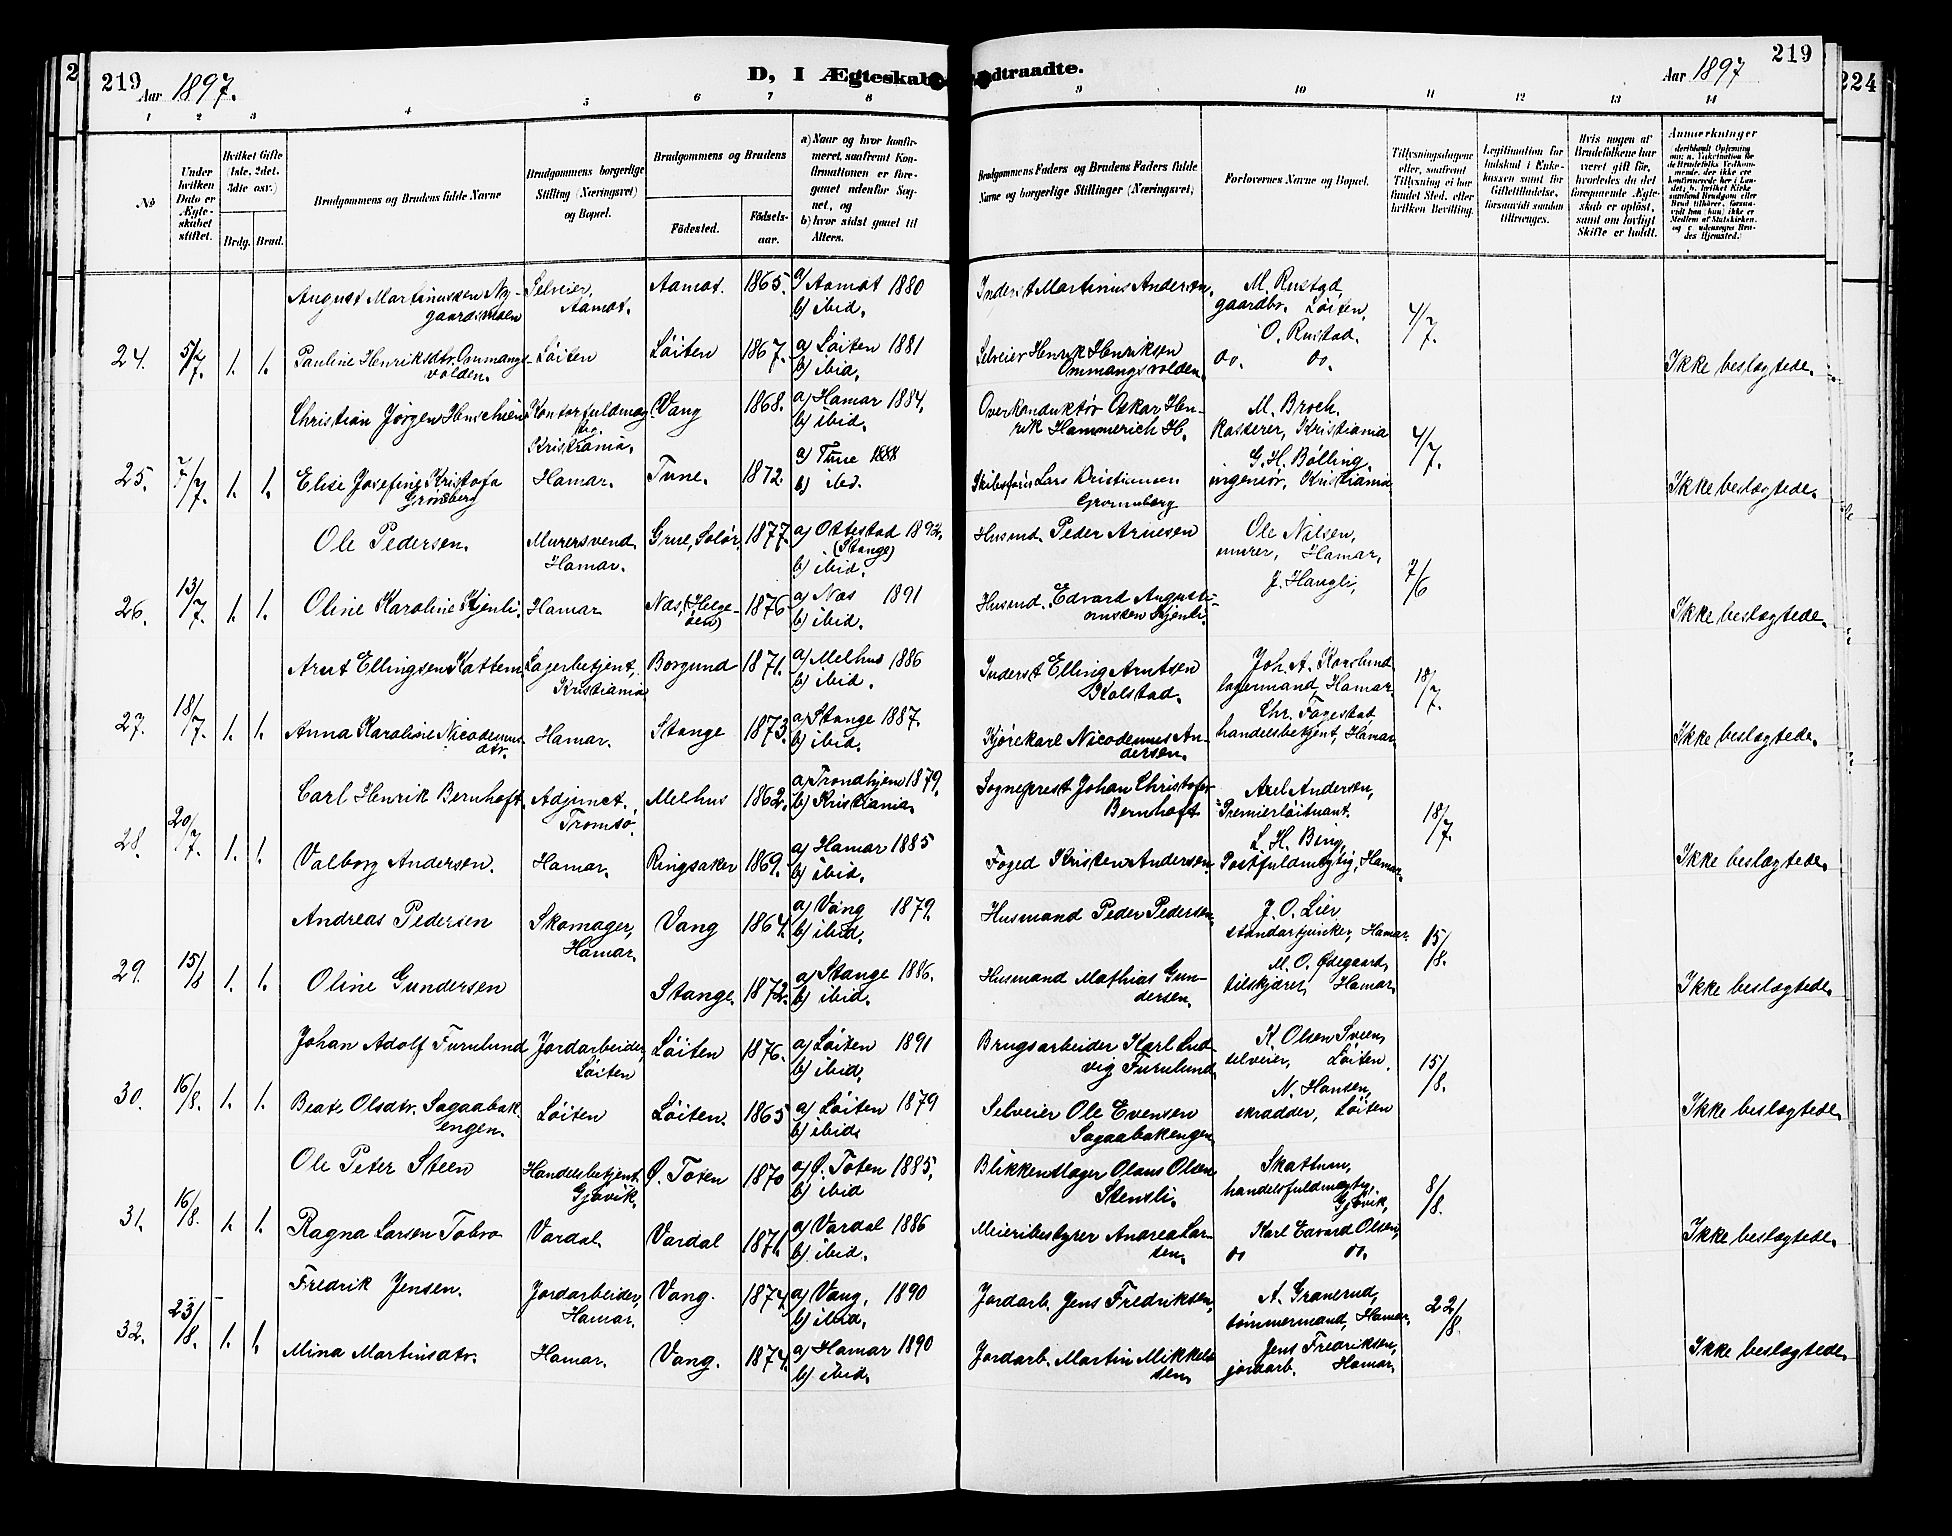 219
Aar 1897.
D, I Ægteskab
ndtraadte.
Aar 1897
219
224
2
1 2 3 4 5 6 7 8 9 10 11 12 13 14
No
Under hvilken Dato er Ægteskabet stiftet.
Hvilket Gifte (1ste, 2det, 3die osv.)
Brdg. Brud.
Brudgommens og Brudens fulde Navne
Brudgommens borgerlige Stilling (Næringsvei) og Bopæl.
Brudgommens og Brudens
Fødested.
Fødselsaar.
a) Naar og hvor konfirmeret, saafremt Konfirmationen er foregaaet udenfor Sognet, og
b) hvor sidst gaaet til Alters.
Brudgommens Faders og Brudens Faders fulde Navne og borgerlige Stillinger (Næringsvei)
Forlovernes Navne og Bopæl.
Tillysningsdagene eller, saafremt Tillysning ei har fundet Sted, efter hvilken Bevilling.
Legitimation for Indskud i Enkekassen samt for Giftetilladelse, forsaavidt saadan tiltrænges.
Hvis nogen af Brudefolkene har været gift før, hvorledes da det foregaaende Ægteskab er opløst, samt om lovligt Skifte er holdt.
Anmærkninger
August Martinussen Nygaardsmoen Selveier, Aamot. Aamot. 1865. a) Aamot 1880 b) ibid. Inderst Martinus Andersen. M. Rustad gaardbr. Løiten,
24. 5/7. 1. 1. Pauline Henriksdtr. Ommangsvolden. Løiten Løiten 1867. a) Løiten 1881 b) ibid. Selveier Henrik Henriksen Ommangsvolden. O. Rustad. do. do. 4/7. Ikke beslægtede.
Christian Jørgen Hinrichsen Kontorfuldmægtig. Kristiania. Vang 1868. a) Hamar 1884. b) ibid. Overkonduktør Oskar Henrik Hammerich H. M. Broch. kasserer, Kristiania
25. 7/7. 1. 1. Elise Josefine Kristofa Grønsberg Hamar. Tune. 1872. a) Tune 1888 b) ibd. Skibsfører Lars Kristiansen G. H. Bølling, ingeniør, Kristiania 4/7. Ikke beslægtede.
Ole Pedersen. Murersvend. Hamar. Grue, Solør. 1877. a) Ottestad 1892. (Stange) b) ibid. Husmd. Peder Arnesen Ole Nilsen, murer, Hamar,
26. 13/7. 1. 1. Oline Karoline Kjenli. Hamar Næs, (Helgeøen) 1876 a) Næs 1891 b) ibid. Husmd. Edvard Augustinussen Kjenli. J. Haugli, 7/6 Ikke beslægtede.
Arnt Ellingsen Kattem. Lagerbetjent, Kristiania Borgund 1871. a) Melhus 1886 b) ibid. Inderst Elling Arntsen Kolstad. Joh. A. Kaaslund lagermand, Hamar.
27. 18/7. 1. 1. Anna Karoline Nicodemusdtr. Hamar. Stange 1873. a) Stange 1887. b) ibid. Kjørekarl Nicodemus Andersen. Chr. Fagestad handelsbetjent, Hamar. 18/7. Ikke beslægtede.
Carl Henrik Bernhoft. Adjunct. Tromsø. Melhus 1862. a) Trondhjem 1879, b) Kristiania. Sogneprest Johan Christofer Bernhoft Axel Andersen, Premierløitnant.
28. 20/7. 1. 1. Valborg Andersen. Hamar. Ringsaker 1869. a) Hamar 1885 b) ibid. Foged Kristen Andersen. L. H. Bing, Postfuldmægtig, Hamar. 18/7. Ikke beslægtede.
Andreas Pedersen Skomager, Hamar. Vang 1864. a) Vang 1879. b) ibid. Husmand Peder Pedersen. J. O. Lier, standartjunker, Hamar.
29. 15/8 1. 1. Oline Gundersen Stange. 1872. a) Stange 1886. b) ibid. Husmand Mathias Gundersen. M. O. Ødegaard, tilskjærer, Hamar. 15/8. Ikke beslægtede.
Johan Adolf Furulund Jordarbeider, Løiten Løiten 1876. a) Løiten 1891 b) ibid. Brugsarbeider Karl Ludvig Furulund. K. Olsen Sveen, selveier, Løiten.
30. 16/8. 1. 1. Beate Olsdtr. Sagaabakengen. Løiten Løiten. 1865 a) Løiten 1879 b) ibid. Selveier Ole Evensen Sagaabakengen. N. Hansen, skrædder, Løiten 15/8. Ikke beslægtede.
Ole Peter Steen Handelsbetjent. Gjøvik. Ø. Toten 1870 a) Ø. Toten 1885. b) ibid Blikkenslager Olaus Olsen Stensli. Skattum, handelsfuldmægtig. Gjøvik,
31. 16/8. 1. 1. Ragna Larsen Tobro Vardal. Vardal 1871. a) Vardal 1886 b) ibid. Meieribestyrer Andreas Larsen. Karl Edvard Olsen, do do. 8/8. Ikke beslægtede.
Fredrik Jensen. Jordarbeider, Hamar. Vang. 1874. a) Vang. 1890 b) ibid. Jordarb. Jens Fredriksen, A. Granerud, tømmermand, Hamar.
32. 23/8. 1. 1. Mina Martinsdtr. Hamar. Vang. 1874. a) Hamar 1890 b) ibid. Jordarb. Martin Mikkelsen. Jens Fredriksen, jordarb. Hamar. 22/8. Ikke beslægtede.